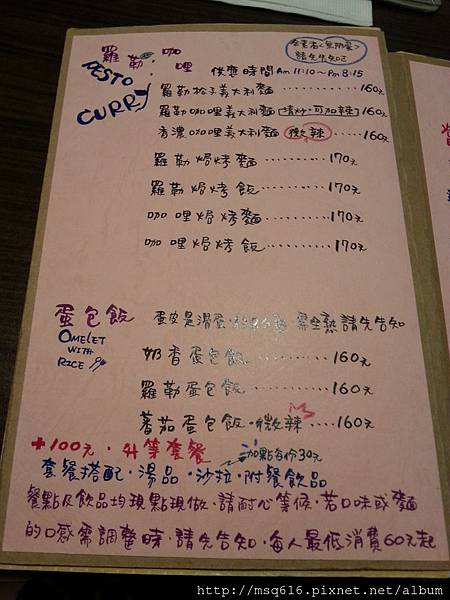 羅勒.咖哩
PESTO
CURRY
全素者(無附湯)
請先告知
供應時間Am 11:10~Pm 8:15
羅勒松子義大利麵..........160元
羅勒咖哩義大利麵[清炒.可加辣]160元
香濃咖哩義大利麵 微辣 .....160元
羅勒焗烤麵..........170元
羅勒焗烤飯..........170元
咖哩焗烤麵..........170元
咖哩焗烤飯..........170元
蛋包飯
OMELET
WITH
RICE
蛋皮是滑蛋. 需全熟請先告知
奶香蛋包飯..........160元
羅勒蛋包飯..........160元
蕃茄蛋包飯.微辣.....160元
+100元.升等套餐
加點每份30元
套餐搭配.湯品.沙拉.附餐飲品
餐點及飲品均現點現做.請耐心等候.若口味或麵
的口感需調整時.請先告知.每人最低消費60元起
http://msq616.pixnet.net/album